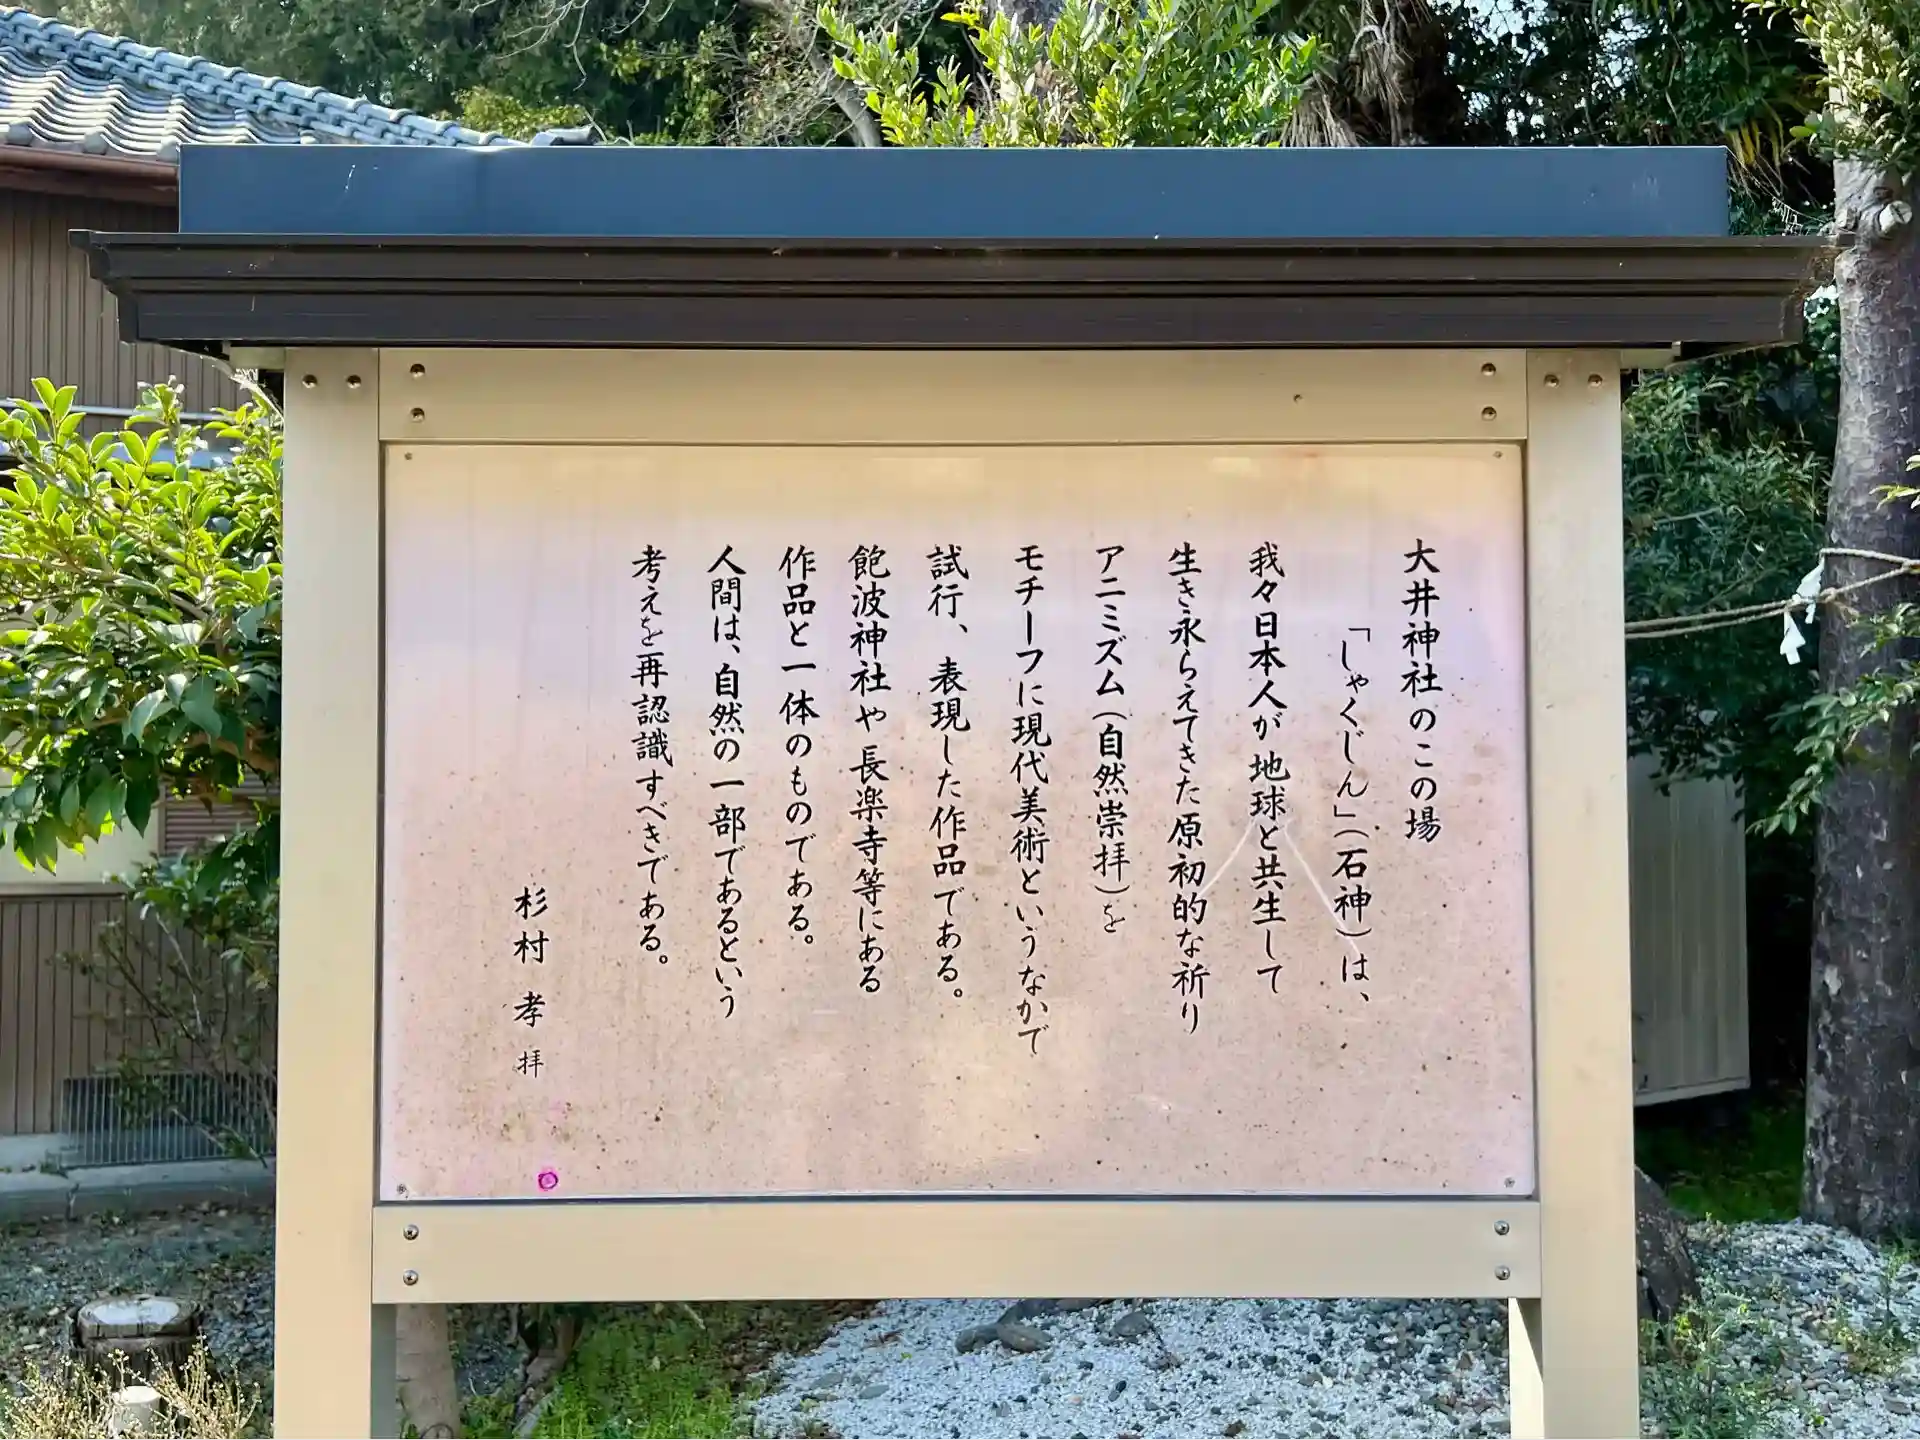 大井神社のこの場
「しゃくじん」(石神)は、
我々日本人が地球と共生して
生き永らえてきた原初的な祈り
アニミズム(自然崇拝)を
モチーフに現代美術というなかで
試行、表現した作品である。
飽波神社や長楽寺等にある
作品と一体のものである。
人間は、自然の一部であるという
考えを再認識すべきである。
杉村 孝 拝